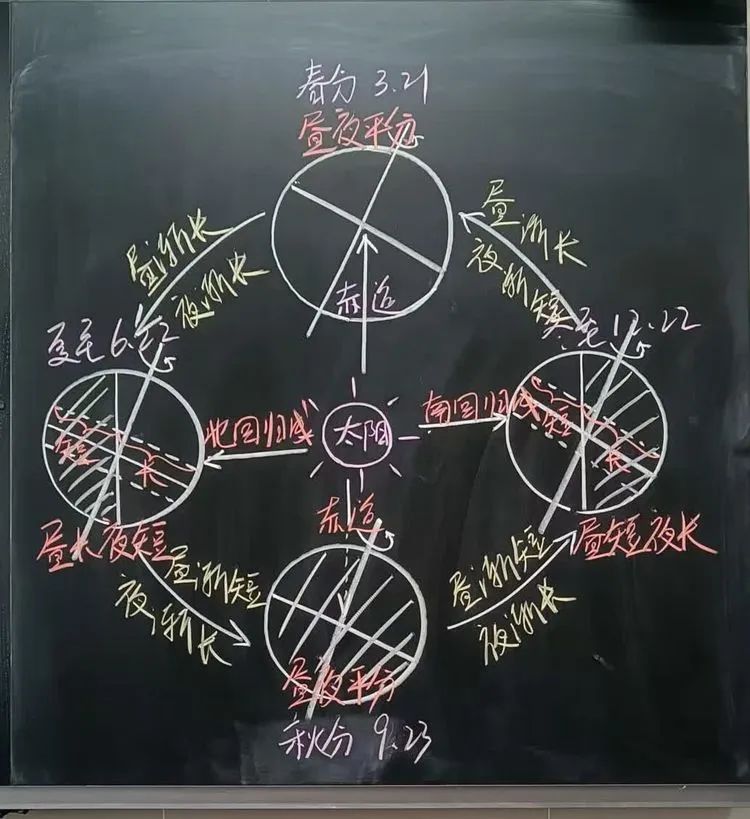 春分 3.21
昼夜平分
昼渐长
夜渐长
昼渐长
夜渐短
赤道
夏至 6.22
冬至 12.22
北回归线
太阳
南回归线
短
长
短
长
赤道
昼长夜短
昼短夜长
昼渐短
夜渐长
昼渐短
夜渐长
昼夜平分
秋分 9.23